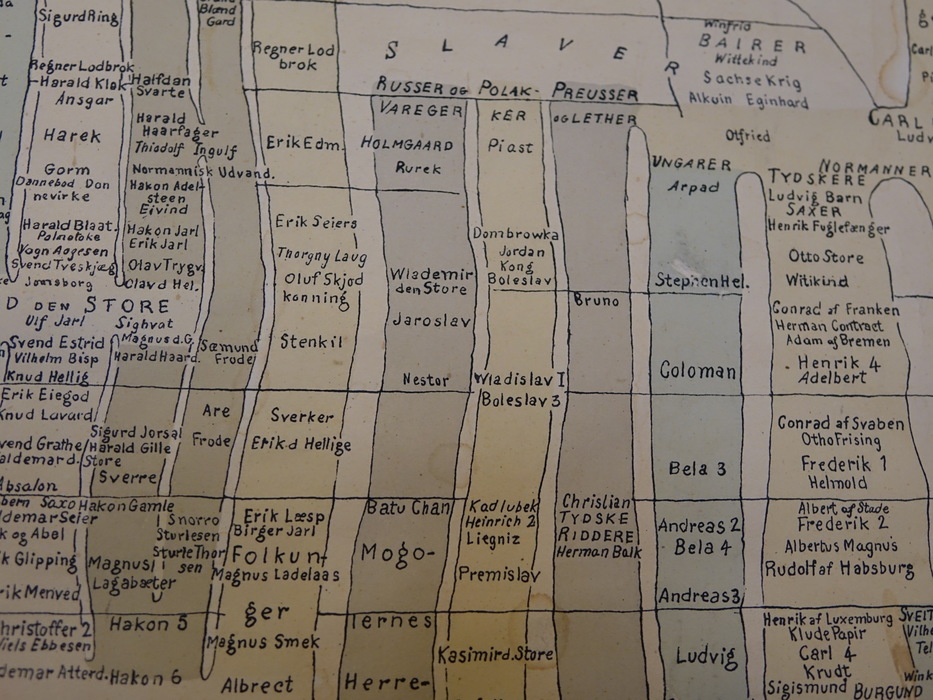 SigurdRing
Regner Lodbrok
Harald Klak
Ansgar
Harek
Gorm
Dannebod Dan
nevirke
Harald Blaat.
Palnatoke
Vagn Aagesen
Svend Tveskjæg
Jomsborg
D DEN STORE
Ulf Jarl
Svend Estrid
Vilhelm Bisp
Knud Hellig
Erik Eiegod
Knud Lavard
vend Grathe
aldemar d. Store
Absalon
bern Saxo
ldemar Seier
k og Abel
k Glipping
rik Menved
hristoffer 2
Niels Ebbesen
demar Atterd.
Halfdan
Svarte
Harald
Haarfager
Thiodolf Ingulf
Normannisk Udvand.
Hakon Adel-
steen
Eivind
Hakon Jarl
Erik Jarl
Olav Trygv.
Olav d Hel.
Sighvat
Magnus d.G.
Harald Haard.
Sigurd Jorsal
Harald Gille
Sverre
Hakon Gamle
Magnus
Lagabæter
Hakon 5
Hakon 6
Bland
Gard
Sæmund
Frode
Are
Frode
Snorro
Sturlesen
Sturle Thor
sen
Regner Lod
brok
Erik Edm.
Erik Seiers
Thorgny Laug
Oluf Skjod
konning
Stenkil
Sverker
Erik d Hellige
Erik Læsp
Birger Jarl
Folkun-
Magnus Ladelaas
ger
Magnus Smek
Albrect
SLAVER
RUSSER OG POLAK- PREUSSER
VAREGER
HOLMGAARD
Rurek
Wlademir
den Store
Jaroslav
Nestor
Batu Chan
Mogo-
lernes
Herre-
KER
Piast
Dombrowka
Jordan
Kong
Boleslav
Wladislav I
Boleslav 3
Kadlubek
Heinrich 2
Liegniz
Premislav
Kasimir d. Store
OG LETHER
Bruno
Christian
TYDSKE
RIDDERE
Herman Balk
UNGARER
Arpad
Stephen Hel.
Coloman
Bela 3
Andreas 2
Bela 4
Andreas 3
Ludvig
Winfrid
BAIRER
Wittekind
Sachse Krig
Alkuin Eginhard
Otfried
CARL
Ludv
NORMANNER
TYDSKERE
Ludvig Barn
SAXER
Henrik Fuglefænger
Otto Store
Witikind
Conrad af Franken
Herman Contract
Adam af Bremen
Henrik 4
Adelbert
Conrad af Svaben
Otho Frising
Frederik 1
Helmold
Albert af Stade
Frederik 2
Albertus Magnus
Rudolf af Habsburg
Henrik af Luxemburg
Klude Papir
Carl 4
Krudt
Sigismund
SVEIT
Vilhe
Tel
Wink
BURGUND